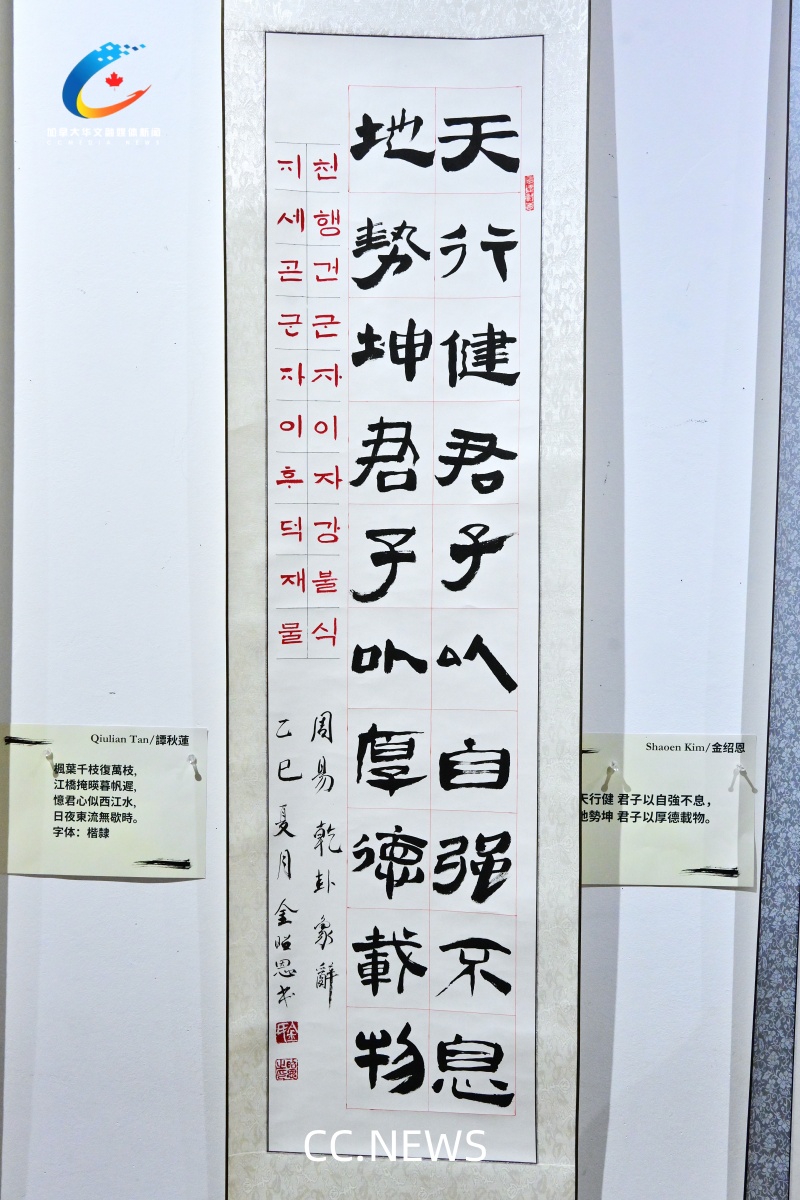 天行健君子以自强不息
地勢坤君子以厚德載物
천행건군자이자강불식
지세곤군자이후덕재물
周易 乾卦象辭
乙巳夏月金昭恩书
Qiulian Tan/譚秋蓮
楓葉千枝復萬枝,
江橋掩暎暮帆遲,
憶君心似西江水,
日夜東流無歇時。
字体：楷隸
Shaoen Kim/金绍恩
天行健 君子以自強不息，
地勢坤 君子以厚德載物。
CC.NEWS